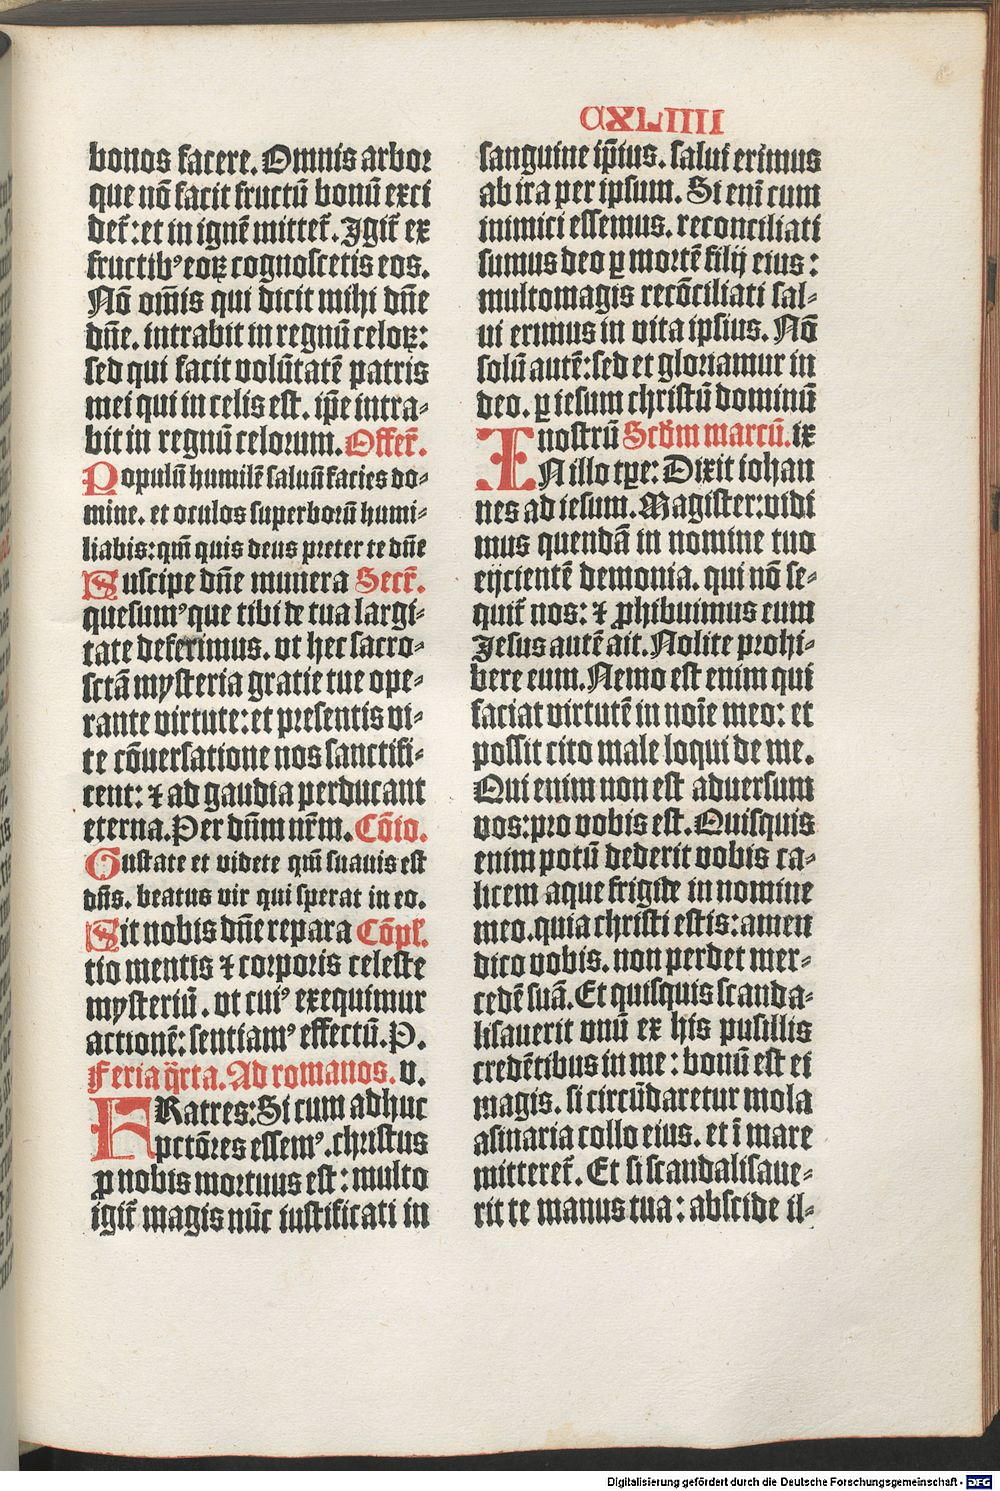 CXLIIII
bonos facere. Omnis arbor
que nō facit fructū bonū exci
det̄: et in ignē mittet̄. Igit̄ ex
fructib⁹ eoꝝ cognoscetis eos.
Nō om̄is qui dicit mihi dn̄e
dn̄e. intrabit in regnū celoꝝ:
sed qui facit volūtatē patris
mei qui in celis est. ip̄e intra⸗
bit in regnū celorum. Offer̄.
Populū humilē saluū facies do⸗
mine. et oculos superborū humi⸗
liabis: qm̄ quis deus preter te dn̄e
Suscipe dn̄e munera Secr̄.
quesum⁹ que tibi de tua largi⸗
tate deferimus. vt hec sacro⸗
sctā mysteria gratie tue ope⸗
rante virtute: et presentis vi⸗
te cōuersatione nos sanctifi⸗
cent: ⁊ ad gaudia perducant
eterna. Per dn̄m nr̄m. Cōio.
Gustate et videte qm̄ suauis est
dn̄s. beatus vir qui sperat in eo.
Sit nobis dn̄e repara Cōpl̄.
tio mentis ⁊ corporis celeste
mysteriū. vt cui⁹ exequimur
actionē: sentiam⁹ effectū. P.
Feria q̄rta. Ad romanos. v.
FRatres: Si cum adhuc
pctōres essem⁹. christus
ꝓ nobis mortuus est: multo
igit̄ magis nūc iustificati in
sanguine ip̄ius. salui erimus
ab ira per ipsum. Si enī cum
inimici essemus. reconciliati
sumus deo ꝑ mortē filij eius:
multomagis recōciliati sal⸗
ui erimus in vita ipsius. Nō
solū autē: sed et gloriamur in
deo. ꝑ iesum christū dominū
nostrū Scd̄m marcū. ix
IN illo tꝑe: Dixit iohan
nes ad iesum. Magister: vidi
mus quendā in nomine tuo
eijcientē demonia. qui nō se⸗
quit̄ nos: ⁊ ꝓhibuimus eum
Jesus autē ait. Nolite prohi⸗
bere eum. Nemo est enim qui
faciat virtutē in noīe meo: et
possit cito male loqui de me.
Qui enim non est aduersum
vos: pro vobis est. Quisquis
enim potū dederit vobis ca⸗
licem aque frigide in nomine
meo. quia christi estis: amen
dico vobis. non perdet mer⸗
cedē suā. Et quisquis scanda⸗
lisauerit vnū ex his pusillis
credētibus in me: bonū est ei
magis. si circūdaretur mola
asinaria collo eius. et ī mare
mitteret̄. Et si scandalisaue⸗
rit te manus tua: abscide il⸗
Digitalisierung gefördert durch die Deutsche Forschungsgemeinschaft - DFG